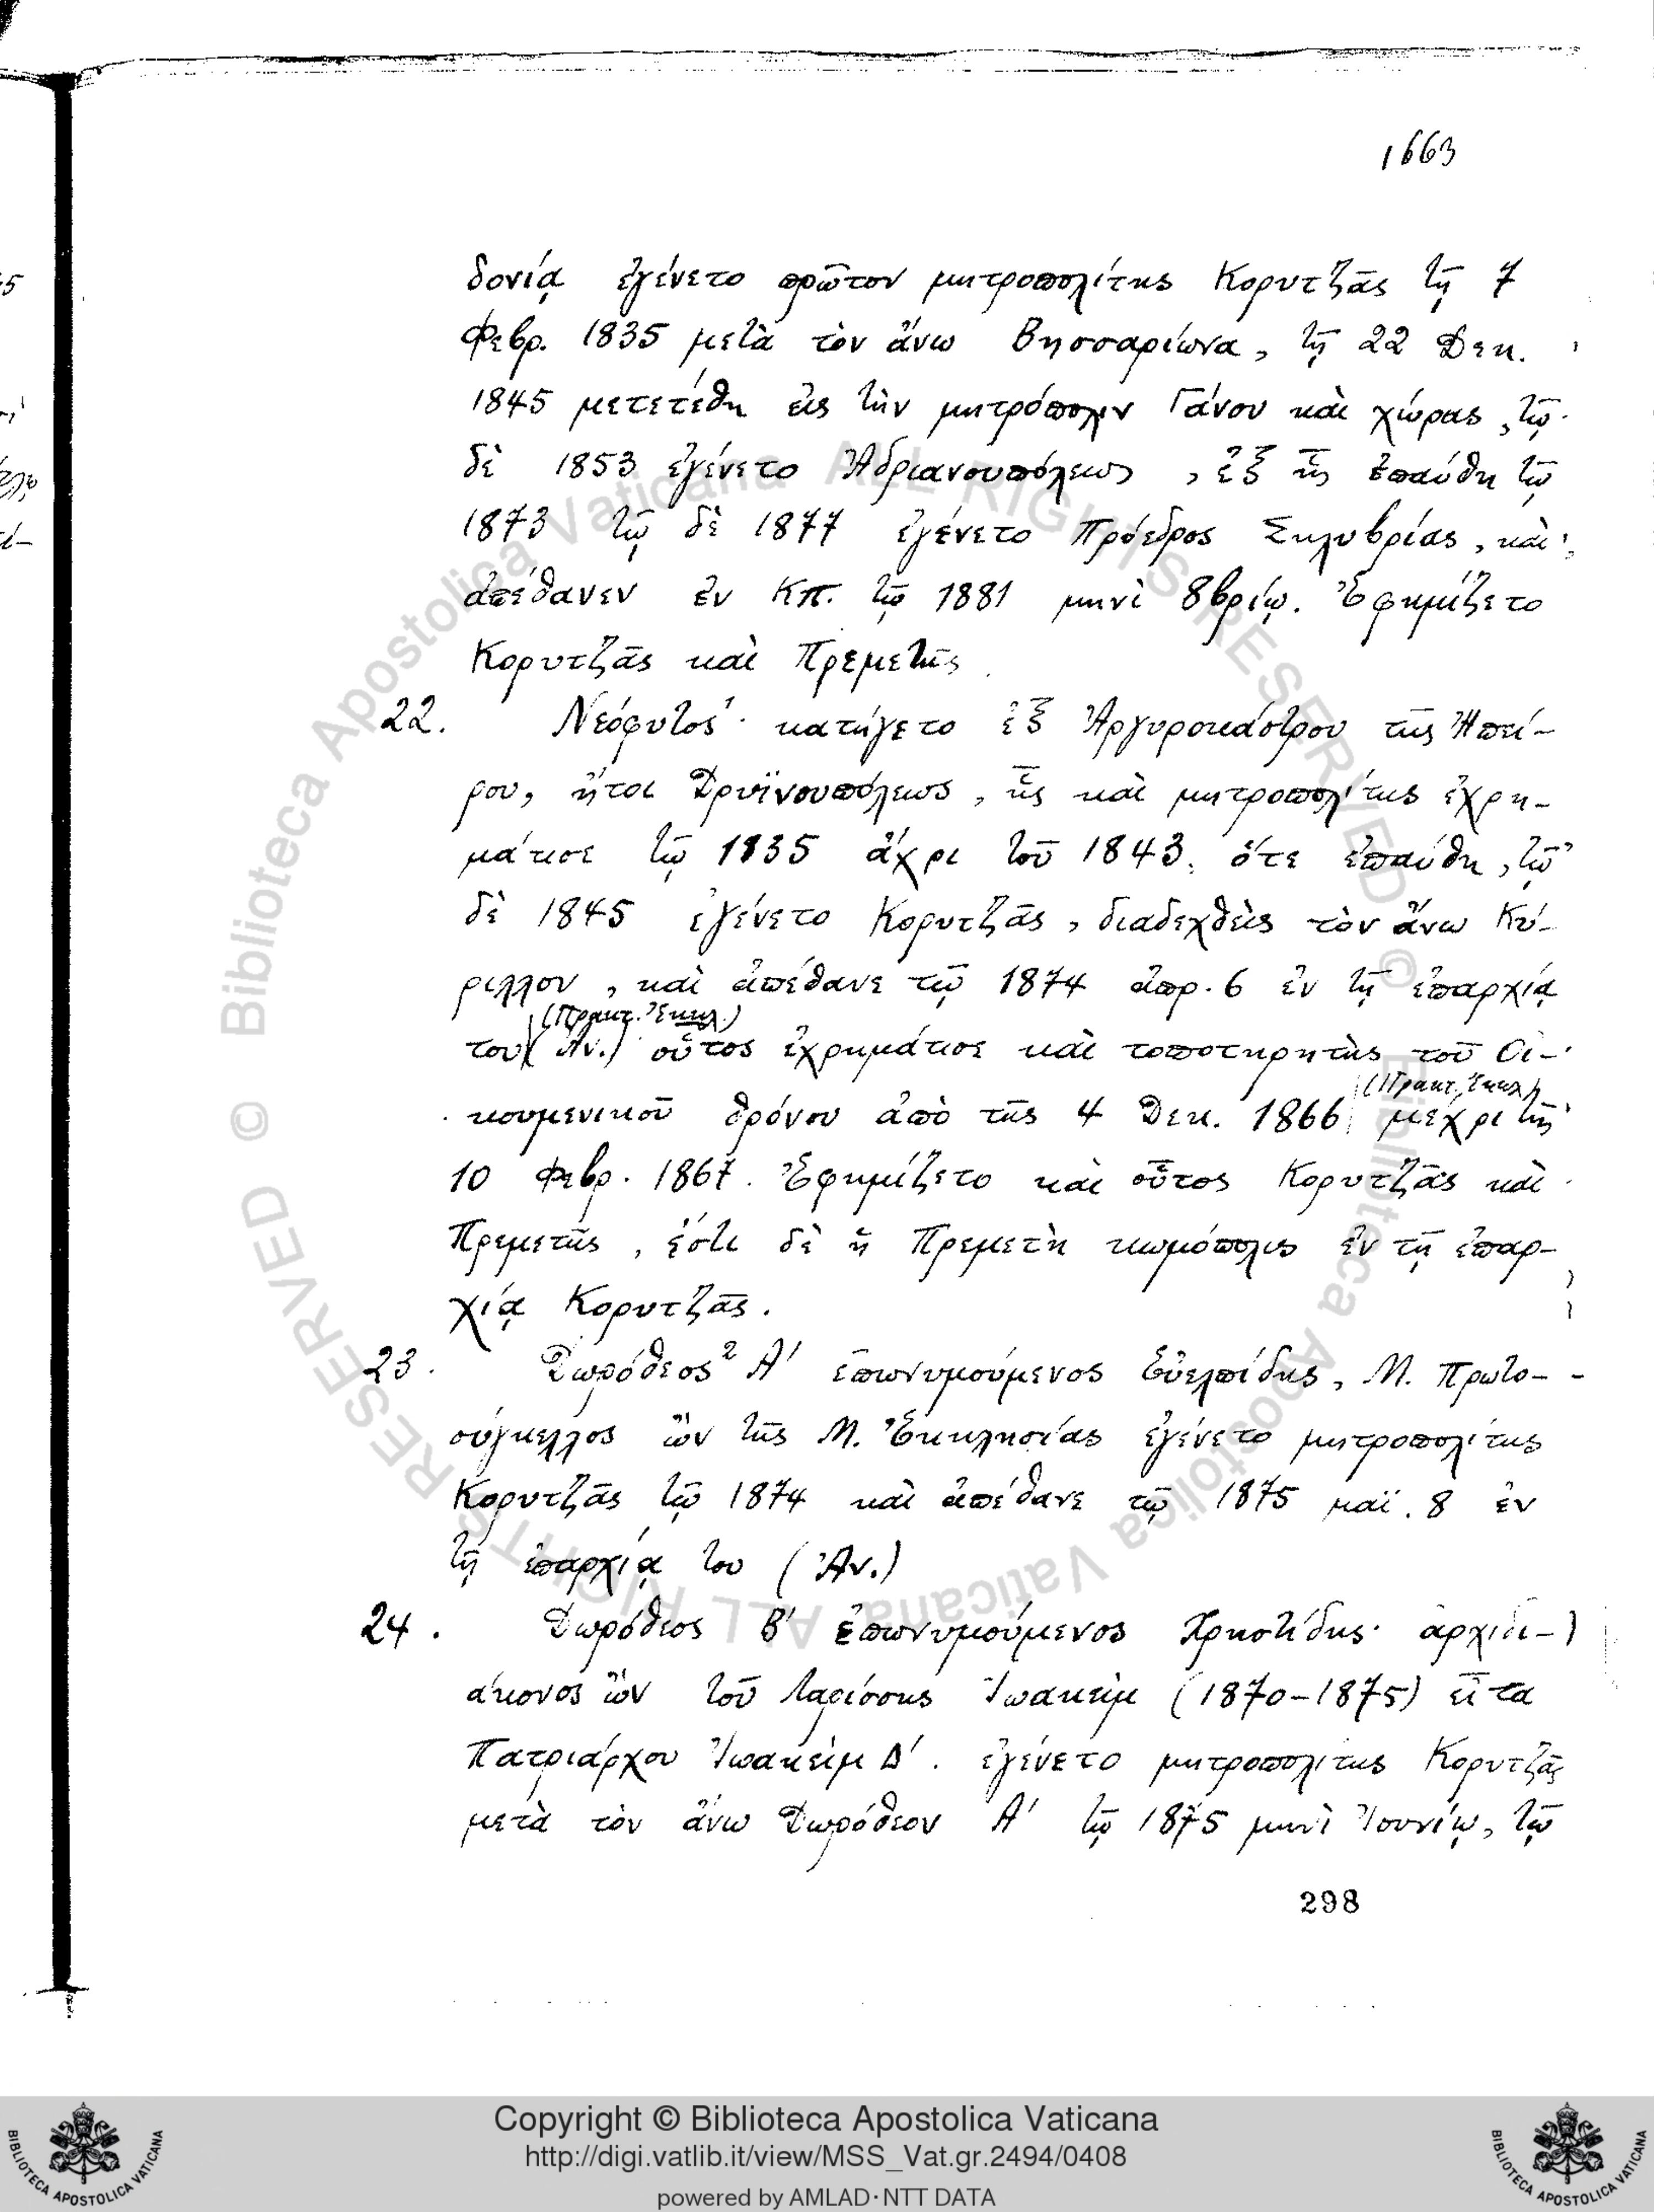 1663
δονίᾳ ἐγένετο πρῶτον μητροπολίτης Κορυτζᾶς τῇ 7
Φεβρ. 1835 μετὰ τὸν ἄνω Βησσαρίωνα, τῇ 22 Δεκ.
1845 μετετέθη εἰς τὴν μητρόπολιν Γάνου καὶ χώρας, τῷ
δὲ 1853 ἐγένετο Ἀδριανουπόλεως, ἐξ ἧς ἐπαύθη τῷ
1873 τῷ δὲ 1877 ἐγένετο Πρόεδρος Σηλυβρίας, καὶ
ἀπέθανεν ἐν Κπ. τῷ 1881 μηνὶ 8βρίῳ. Ἐφημίζετο
Κορυτζᾶς καὶ Πρεμετῆς.
22. Νεόφυτος· κατήγετο ἐξ Ἀργυροκάστρου τῆς Ἠπεί-
ρου, ἤτοι Δρυϊνουπόλεως, ἧς καὶ μητροπολίτης ἐχρη-
μάτισε τῷ 1835 ἄχρι τοῦ 1843, ὅτε ἐπαύθη, τῷ
δὲ 1845 ἐγένετο Κορυτζᾶς, διαδεχθεὶς τὸν ἄνω Κύ-
ριλλον, καὶ ἀπέθανε τῷ 1874 ἀπρ. 6 ἐν τῇ ἐπαρχίᾳ
(Πρακτ. Ἐκκλ.)
του (Ἀν.) οὗτος ἐχρημάτισε καὶ τοποτηρητὴς τοῦ Οἰ-
(Πρακτ. Ἐκκλ.)
κουμενικοῦ θρόνου ἀπὸ τῆς 4 Δεκ. 1866 μέχρι τῆς
10 Φεβρ. 1867. Ἐφημίζετο καὶ οὗτος Κορυτζᾶς καὶ
Πρεμετῆς, ἔστι δὲ ἡ Πρεμετὴ κωμόπολις ἐν τῇ ἐπαρ-
χίᾳ Κορυτζᾶς.
23. Δωρόθεος² Α' ἐπωνυμούμενος Εὐελπίδης, Μ. Πρωτο-
σύγκελλος ὢν τῆς Μ. Ἐκκλησίας ἐγένετο μητροπολίτης
Κορυτζᾶς τῷ 1874 καὶ ἀπέθανε τῷ 1875 μαϊ. 8 ἐν
τῇ ἐπαρχίᾳ του (Ἀν.)
24. Δωρόθεος Β' ἐπωνυμούμενος Χρηστίδης· ἀρχιδι-
άκονος ὢν τοῦ Λαρίσσης Ἰωακεὶμ (1870-1875) εἶτα
Πατριάρχου Ἰωακεὶμ Δ'. ἐγένετο μητροπολίτης Κορυτζᾶς
μετὰ τὸν ἄνω Δωρόθεον Α' τῷ 1875 μηνὶ Ἰουνίῳ, τῷ
298
Copyright © Biblioteca Apostolica Vaticana
http://digi.vatlib.it/view/MSS_Vat.gr.2494/0408
powered by AMLAD·NTT DATA
BIBLIOTECA APOSTOLICA VATICANA
BIBLIOTECA APOSTOLICA VATICANA
© Biblioteca Apostolica Vaticana ALL RIGHTS RESERVED © Biblioteca Apostolica Vaticana ALL RIGHTS RESERVED